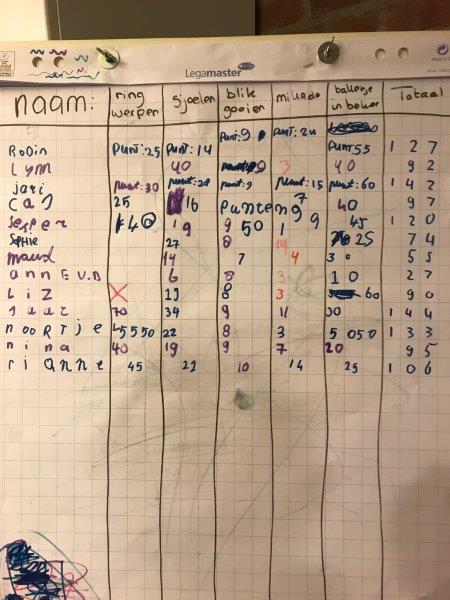 Legamaster
naam: ring werpen sjoelen blik gooien mikado balletje in beker Totaal
Robin punt:25 punt:14 punt:9 punt:24 punt:55 127
Lynn 40 9 3 40 92
jari punt:30 punt:28 punt:9 punt:15 punt:60 142
Cas 25 16 punten 9 7 40 97
Jesper 40 19 9 1 9 45 120
Sophie 27 8 14 25 74
maud 14 7 4 30 55
ann E V.D 6 8 3 10 27
Liz X 19 8 3 60 90
70 34 9 11 30 144
noortje 50 22 8 3 50 133
nina 40 19 9 7 20 95
rianne 45 22 10 14 25 106